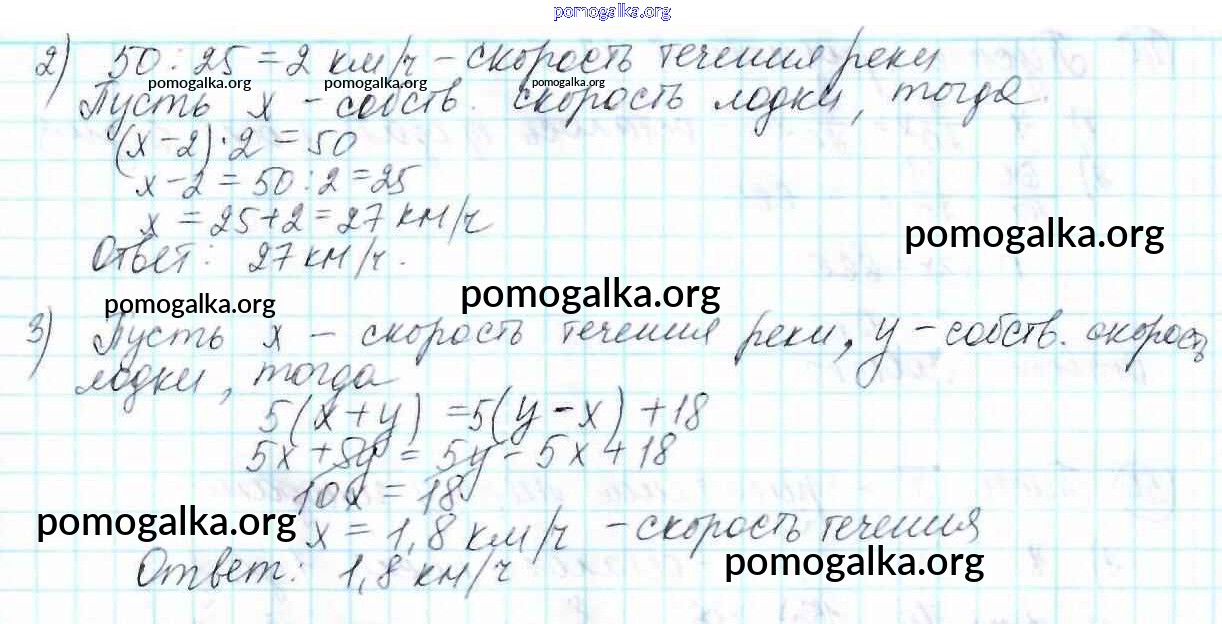 pomogalka.org
2) 50 : 25 = 2 км/ч – скорость течения реки
pomogalka.org pomogalka.org pomogalka.org
Пусть x – собств. скорость лодки, тогда
(x – 2) · 2 = 50
x – 2 = 50 : 2 = 25
x = 25 + 2 = 27 км/ч
pomogalka.org
Ответ: 27 км/ч.
pomogalka.org pomogalka.org
3) Пусть x – скорость течения реки, y – собств. скорость
лодки, тогда
5(x + y) = 5(y – x) + 18
5x + 5y = 5y – 5x + 18
10x = 18
pomogalka.org
x = 1,8 км/ч – скорость течения
Ответ: 1,8 км/ч
pomogalka.org